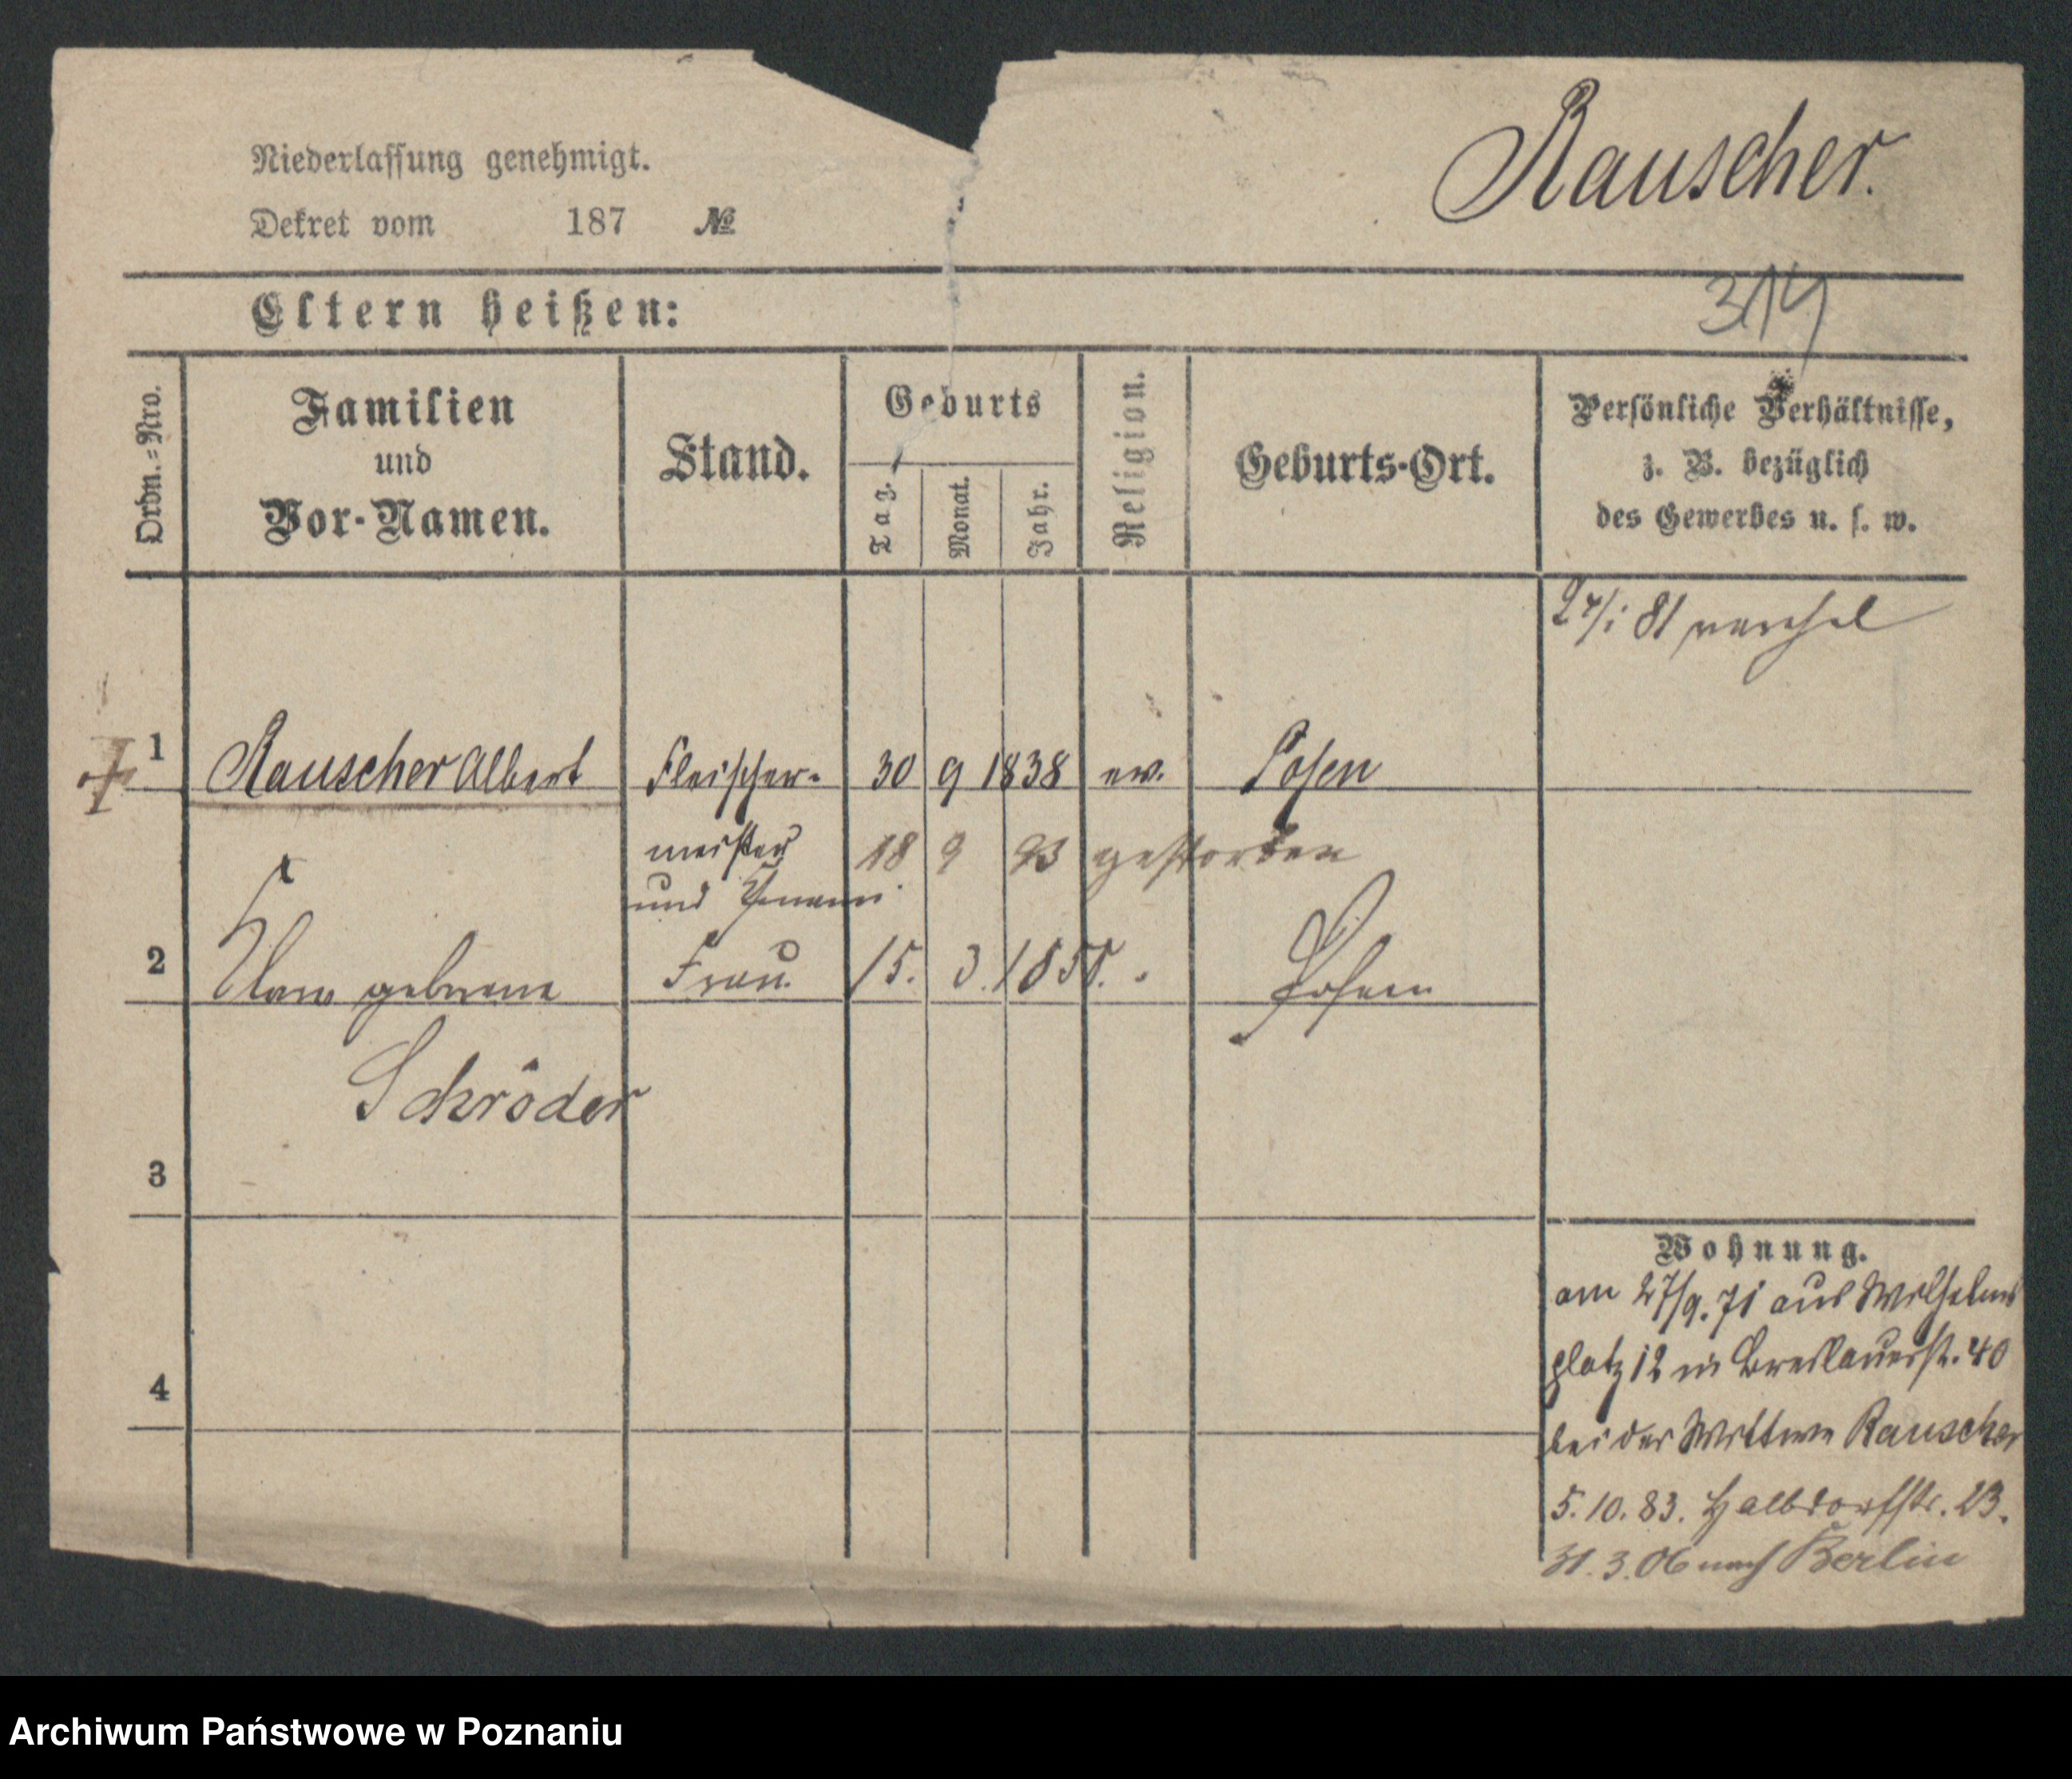 Niederlassung genehmigt.
Dekret vom 187 №
Rauscher.
314
Eltern heißen:
Ordn.=Nro.
Familien
und
Vor-Namen.
Stand.
Geburts
Tag.
Monat.
Jahr.
Religion.
Geburts-Ort.
Persönliche Verhältnisse,
z. B. bezüglich
des Gewerbes u. s. w.
24/1 81
1 Rauscher Albert Fleischer- 30 9 1838 ev. Posen
meister 18 9 93 gestorben
und
2 geborene Frau 15. 3. 185 Posen
Schröder
3
4
Wohnung.
am 27/9. 71 aus Wilhelms
platz 12 in Breslauerst. 40
bei der Wittwe Rauscher
5. 10. 83. Halbdorfstr. 23.
31. 3. 06 nach Berlin
Archiwum Państwowe w Poznaniu